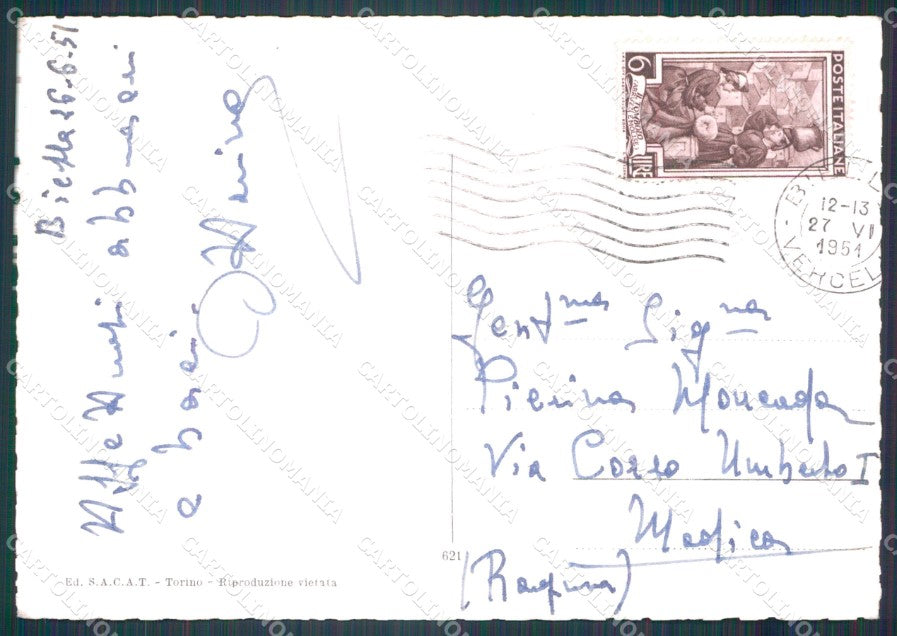 Biella 26-6-51
Affettuosi abbracci
e baci
POSTE ITALIANE
6
LIRE
12-13
27 VI
1951
VERCEL
Gent.ma Sig.na
Pierina Moncada
Via Corso Umberto I
Modica
(Ragusa)
621
Ed. S.A.C.A.T. - Torino - Riproduzione vietata
CARTOLINOMANIA